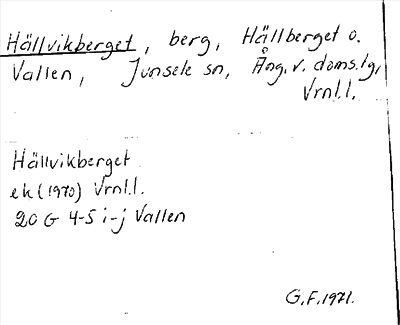 Hällvikberget, berg, Hällberget o.
Vallen, Junsele sn, Ång. v. doms.lg,
Vrnl.l.
Hällvikberget
ek (1970) Vrnl.l.
20 G 4-5 i-j Vallen
G.F. 1971.